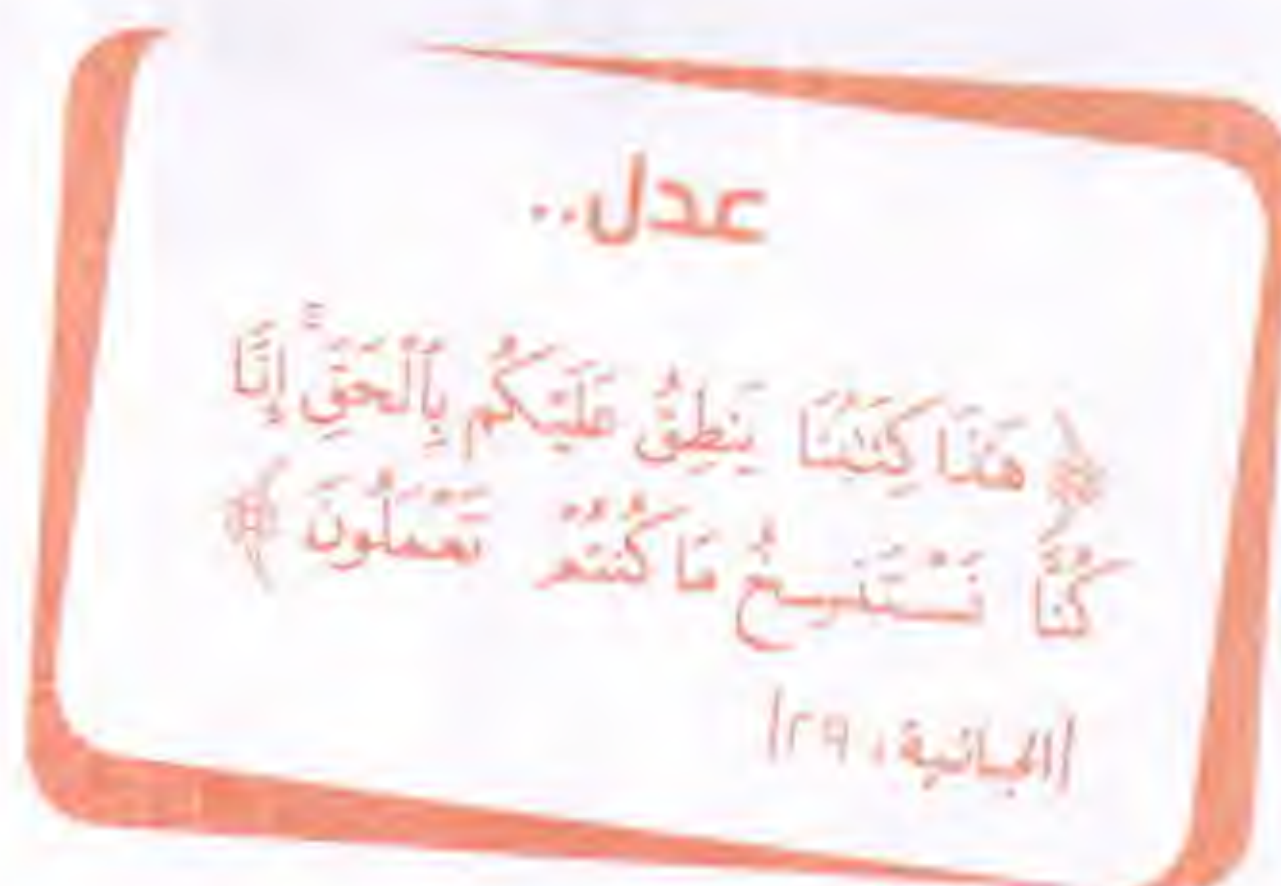 عدل..
﴿ هَٰذَا كِتَٰبُنَا يَنطِقُ عَلَيْكُم بِٱلْحَقِّ ۚ إِنَّا
كُنَّا نَسْتَنسِخُ مَا كُنتُمْ تَعْمَلُونَ ﴾
|الجاثية، ٢٩|